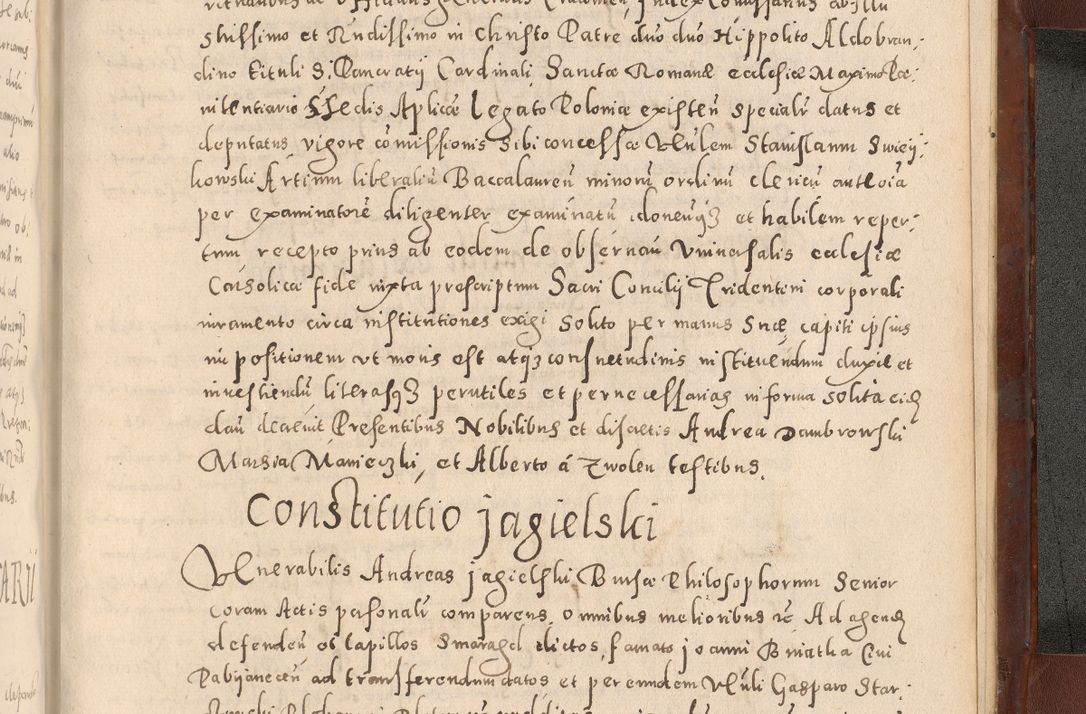 strissimo et Rndissimo in Christo Patre duo duo Hippolito Aldobran,
dino tituli S. Pancratij Cardinali Sanctæ Romanæ ecclesiæ Maximo Pæ,
nitentiario SSedis Aplicæ Legato Poloniæ existen̄ specialr̄ datus et
deputatus vigore com̄issionis sibi concessæ Vēulem Stanislaum Swiey,
kowski Artium liberaliū Baccalaureū minorū ordinū clericū
per examinatorē diligenter examinatū idoneūq3 et habilem reper,
tum recepto prius ab eodem de obseruan̄ Vniuersalis ecclesiæ
Catholicæ fide iuxta prescriptum Sacri Concilij Tridentini corporali
iuramento circa institutiones exigi solito per manus suæ capiti ipsius
impositionem vt moris est atq3 consuetudinis instituendum duxit et
inuestiendū literasq3 perutiles et pernecessarias in forma solita eid
dan̄ decreuit Presentibus Nobilibus et discretis Andrea Dambrowski
Mathia Manieczki, et Alberto á Zwolen testibus.
Constitutio Jagielski
Venerabilis Andreas Jagielski Bursæ Philosophorum Senior
coram Actis personalr̄ comparens, omnibus melioribus &c Ad agend
defenden̄ os lapillos Smaragd dictos, famato Joanni Bniatha Ciui
Pabijanecen̄ ad transferendum datos et per eundem Vēuli Gasparo Star,